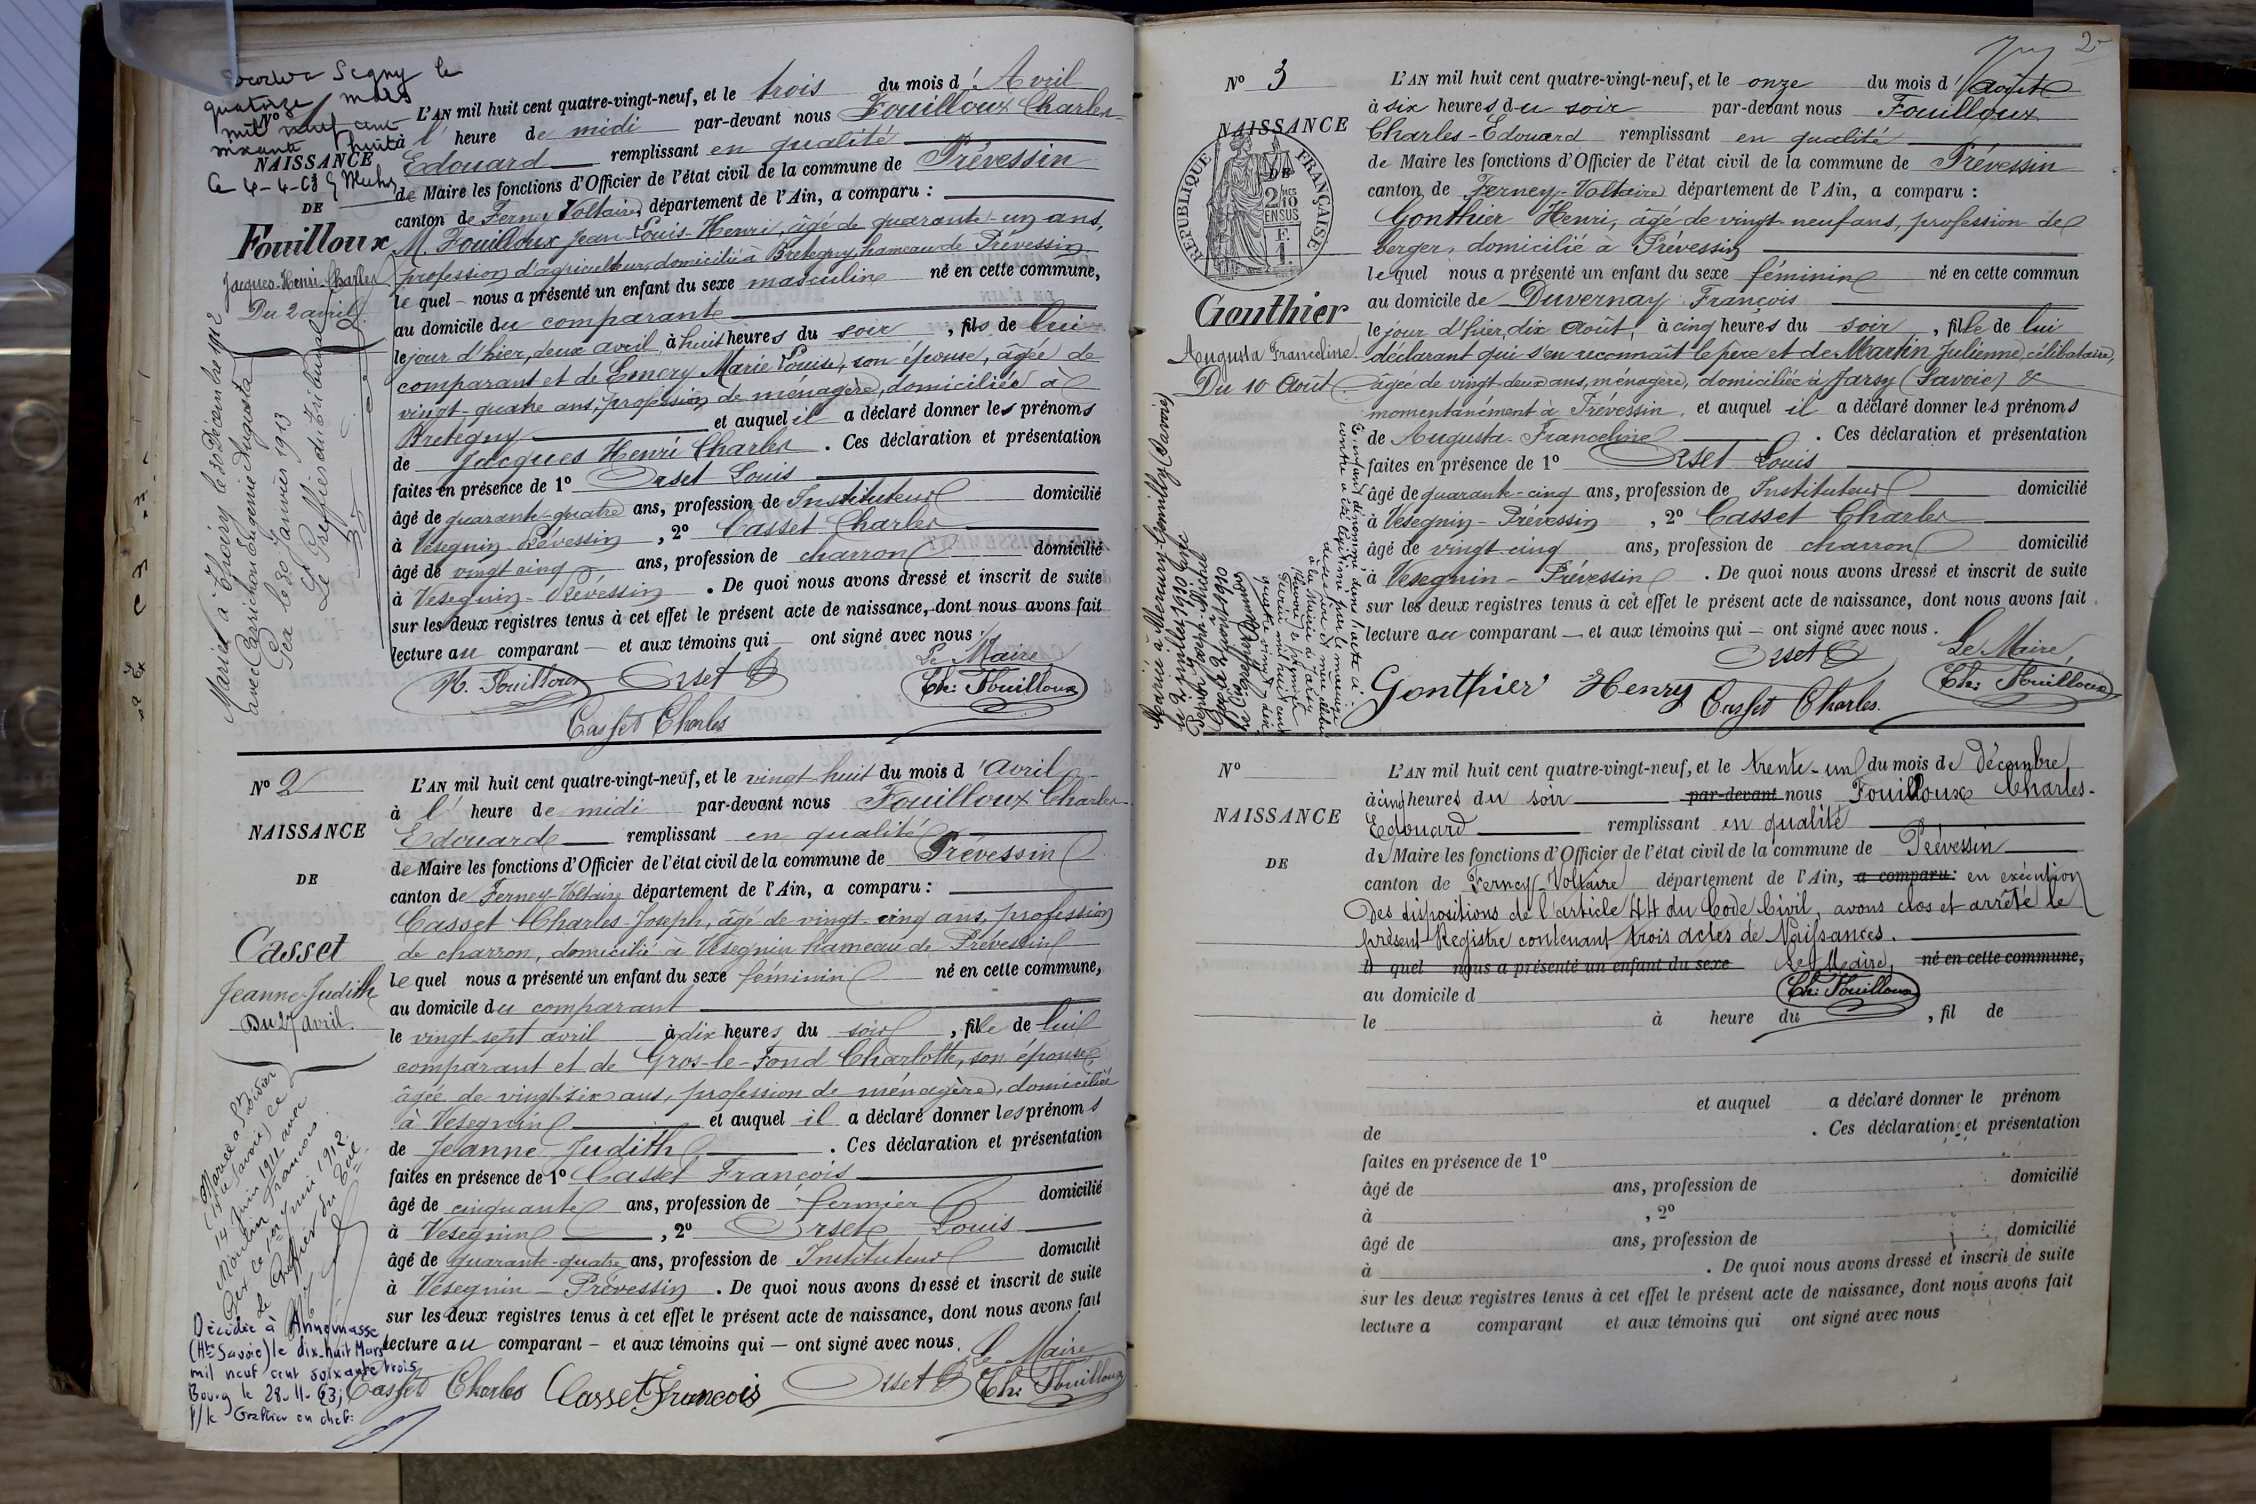 décédé à Segny le
quatorze mars
mil neuf cent
soixante huit
Ce 4-4-68
Nº
NAISSANCE
DE
Fouilloux
Jacques-Henri-Charles
Du 2 avril
Marié à Thoiry le 30 Décembre 1912
avec Carrichon Eugénie Augusta
Gex le 30 Janvier 1913
Le Greffier du Tribunal
L'AN mil huit cent quatre-vingt-neuf, et le trois du mois d'Avril
à l'heure de midi par-devant nous Fouilloux Charles-
Edouard remplissant en qualité
de Maire les fonctions d'Officier de l'état civil de la commune de Prévessin
canton de Ferney Voltaire département de l'Ain, a comparu :
M. Fouilloux Jean-Louis-Henri, âgé de quarante-un ans,
profession d'agriculteur, domicilié à Bretegny, hameau de Prévessin
le quel - nous a présenté un enfant du sexe masculin né en cette commune,
au domicile du comparant
le jour d'hier, deux avril, à huit heures du soir, fils de lui
comparant et de Emery Marie Louise, son épouse, âgée de
vingt-quatre ans, profession de ménagère, domiciliée à
Bretegny et auquel il a déclaré donner les prénoms
de Jacques Henri Charles. Ces déclaration et présentation
faites en présence de 1º Orset Louis
âgé de quarante-quatre ans, profession de Instituteur domicilié
à Vesegnin Prévessin, 2º Casset Charles
âgé de vingt cinq ans, profession de charron domicilié
à Vesegnin-Prévessin. De quoi nous avons dressé et inscrit de suite
sur les deux registres tenus à cet effet le présent acte de naissance, dont nous avons fait
lecture au comparant - et aux témoins qui - ont signé avec nous.
Le Maire
H. Fouilloux Orset Ch: Fouilloux
Casset Charles
Nº 2
NAISSANCE
DE
Casset
Jeanne-Judith
Du 27 avril.
Marié à St
(Hte Savoie) ce
14 Juin 1911 avec
Moulin François
Gex ce 1er Juin 1912.
Le Greffier du Tal.
Décédée à Annemasse
(Hte Savoie) le dix-huit Mars
mil neuf cent soixante trois
Bourg le 28-11-63;
P/le Greffier en chef:
L'AN mil huit cent quatre-vingt-neuf, et le vingt-huit du mois d'Avril
à l'heure de midi par-devant nous Fouilloux Charles-
Edouard remplissant en qualité
de Maire les fonctions d'Officier de l'état civil de la commune de Prévessin
canton de Ferney-Voltaire département de l'Ain, a comparu :
Casset Charles-Joseph, âgé de vingt-cinq ans, profession
de charron, domicilié à Vésegnin hameau de Prévessin
le quel nous a présenté un enfant du sexe féminin né en cette commune,
au domicile du comparant
le vingt sept avril à dix heures du soir, fille de lui
comparant et de Gros-le-Fond Charlotte, son épouse,
âgée de vingt-six ans, profession de ménagère, domiciliée
à Vesegnin et auquel il a déclaré donner les prénoms
de Jeanne Judith. Ces déclaration et présentation
faites en présence de 1º Casset François
âgé de cinquante ans, profession de fermier domicilié
à Vesegnin, 2º Orset Louis
âgé de quarante-quatre ans, profession de Instituteur domicilié
à Vésegnin-Prévessin. De quoi nous avons dressé et inscrit de suite
sur les deux registres tenus à cet effet le présent acte de naissance, dont nous avons fait
lecture au comparant - et aux témoins qui - ont signé avec nous.
Le Maire
Casset Charles Casset François Orset Ch: Fouilloux
2
Nº 3
NAISSANCE
DE
RÉPUBLIQUE FRANÇAISE
2/10
EN SUS
Gonthier
Augusta Franceline
Du 10 Août
Mariée à Mercury-Gemilly (Savoie)
le 2 juillet 1910 avec
Joseph-Michel
Gex le 2 août 1910
Le Greffier
L'enfant dénommé dans l'acte ci-
contre a été légitimé par le mariage
de ses père et mère célébré
à la Mairie de Jarsy
(Savoie) le premier
Février mil huit cent
quatre vingt dix
L'AN mil huit cent quatre-vingt-neuf, et le onze du mois d'août
à six heures du soir par-devant nous Fouilloux
Charles-Edouard remplissant en qualité
de Maire les fonctions d'Officier de l'état civil de la commune de Prévessin
canton de Ferney-Voltaire département de l'Ain, a comparu :
Gonthier Henri, âgé de vingt-neuf ans, profession de
berger, domicilié à Prévessin
le quel nous a présenté un enfant du sexe féminin né en cette commun
au domicile de Duvernay François
le jour d'hier, dix Août, à cinq heures du soir, fille de lui
déclarant qui s'en reconnaît le père et de Martin Julienne, célibataire,
âgée de vingt-deux ans, ménagère, domiciliée à Jarsy (Savoie) &
momentanément à Prévessin, et auquel il a déclaré donner les prénoms
de Augusta-Franceline. Ces déclaration et présentation
faites en présence de 1º Orset Louis
âgé de quarante-cinq ans, profession de Instituteur domicilié
à Vesegnin-Prévessin, 2º Casset Charles
âgé de vingt-cinq ans, profession de charron domicilié
à Vesegnin-Prévessin. De quoi nous avons dressé et inscrit de suite
sur les deux registres tenus à cet effet le présent acte de naissance, dont nous avons fait
lecture au comparant - et aux témoins qui - ont signé avec nous.
Orset Le Maire,
Gonthier Henry Casset Charles. Ch: Fouilloux
Nº
NAISSANCE
DE
L'AN mil huit cent quatre-vingt-neuf, et le trente-un du mois de Décembre
à cinq heures du soir par-devant nous Fouilloux Charles-
Edouard remplissant en qualité
de Maire les fonctions d'Officier de l'état civil de la commune de Prévessin
canton de Ferney-Voltaire département de l'Ain, a comparu : en exécution
des dispositions de l'article 44 du Code Civil, avons clos et arrêté le
présent Registre contenant trois actes de Naissances.
l quel nous a présenté un enfant du sexe Le Maire, né en cette commune,
au domicile d Ch: Fouilloux
le à heure du , fil de
et auquel a déclaré donner le prénom
de . Ces déclaration et présentation
faites en présence de 1º
âgé de ans, profession de domicilié
à , 2º
âgé de ans, profession de domicilié
à . De quoi nous avons dressé et inscrit de suite
sur les deux registres tenus à cet effet le présent acte de naissance, dont nous avons fait
lecture a comparant et aux témoins qui ont signé avec nous